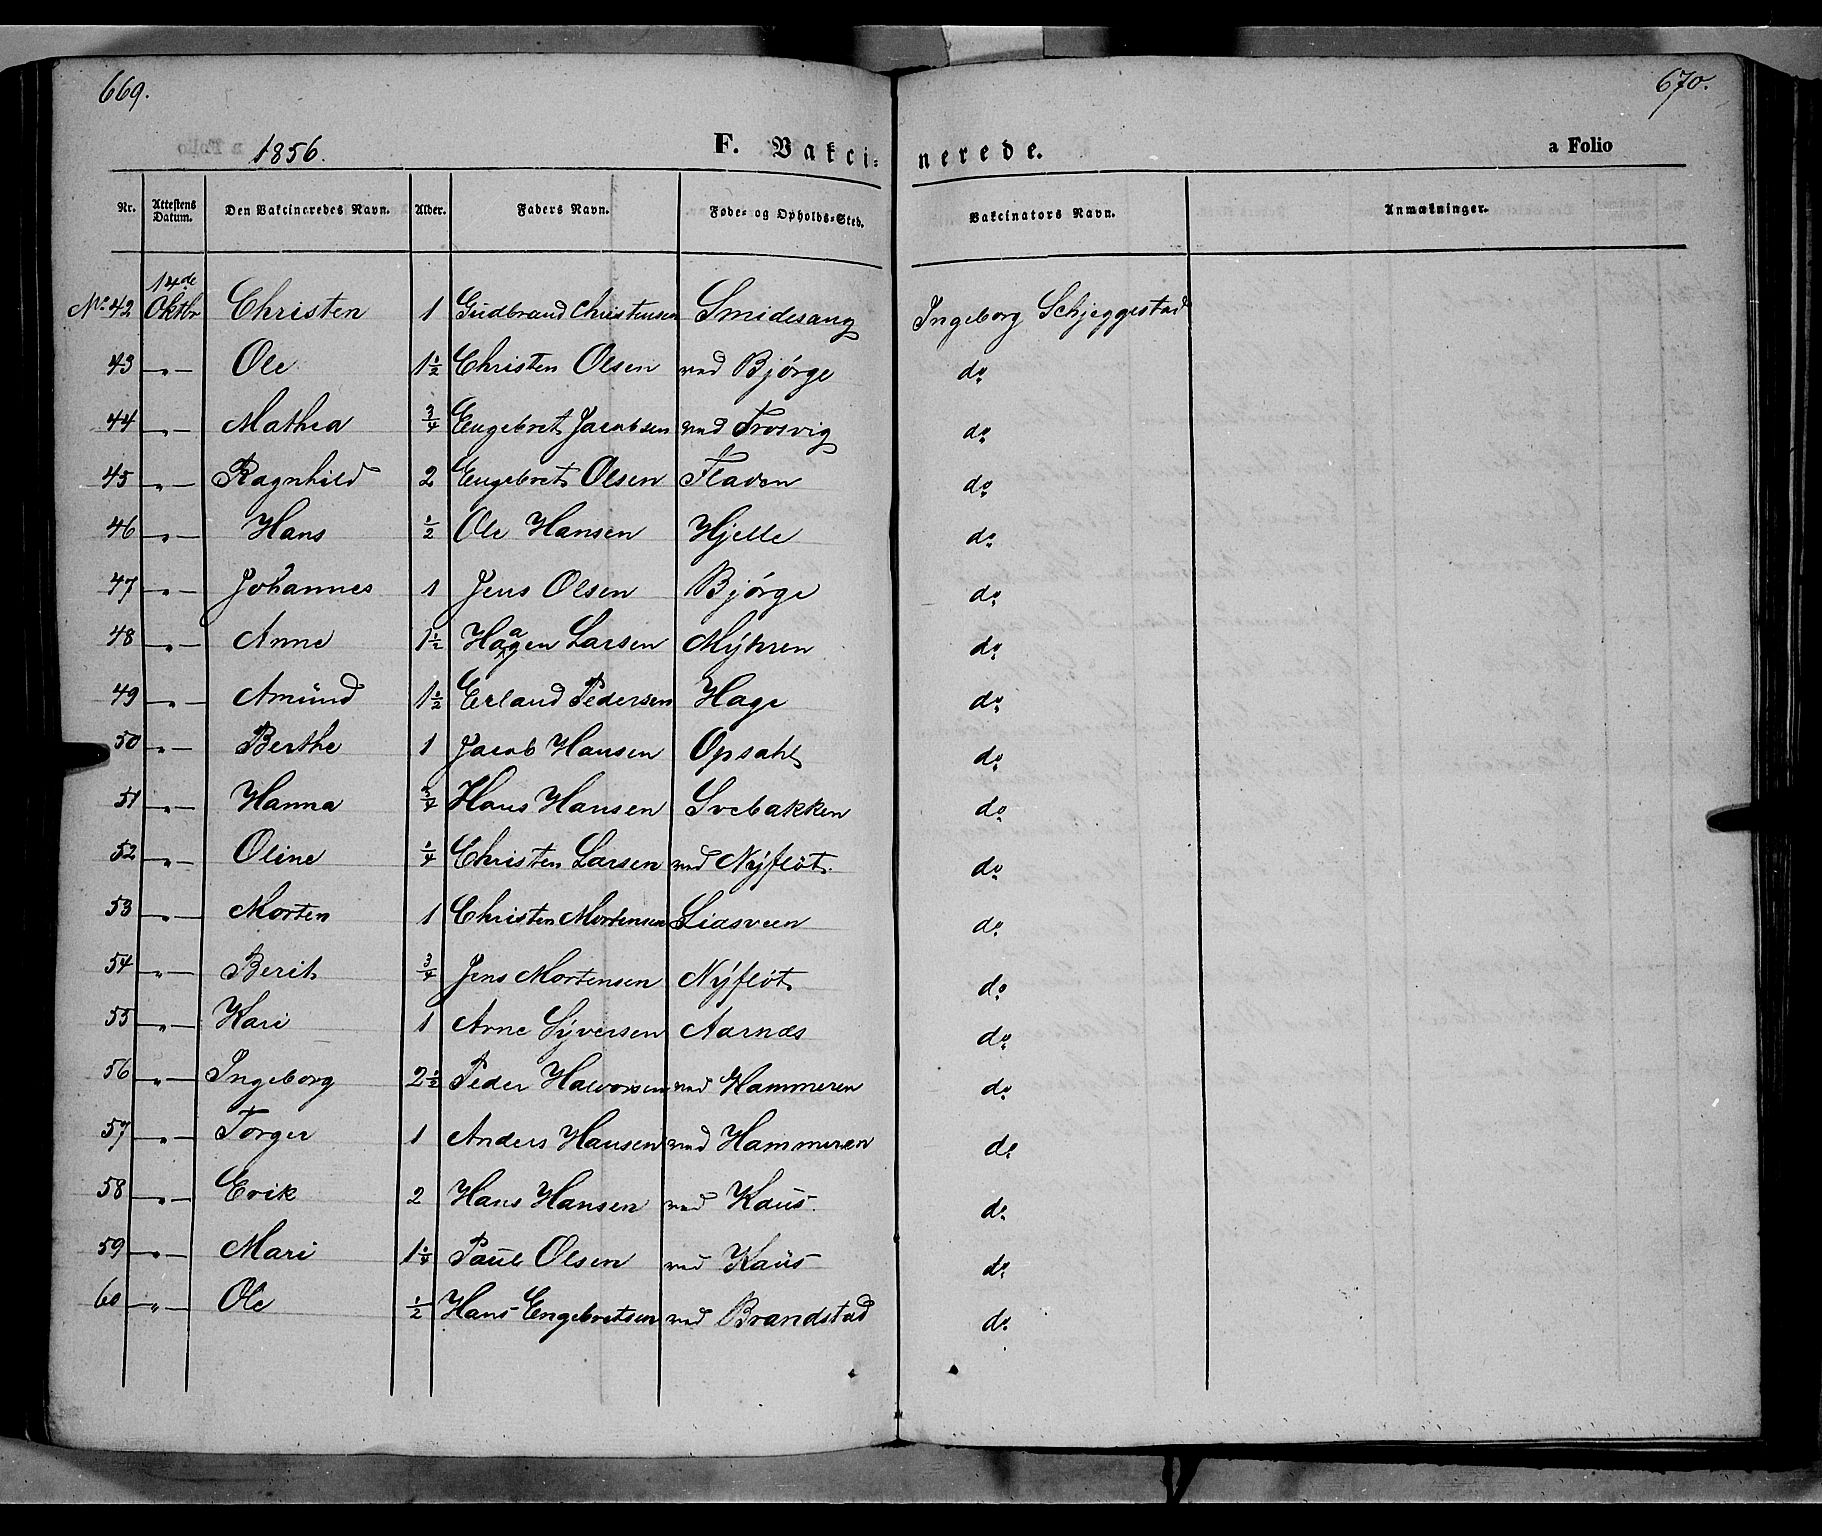 669.
670.
1856.
F. Vakci= nerede.
a Folio
Nr. Attestens Datum. Den Vakcineredes Navn. Alder. Faders Navn. Føde- og Opholds-Sted. Vakcinators Navn. Anmærkninger.
No 42 14de Oktbr Christen 1 Gudbrand Christensen Smidesang Ingeborg Schjeggestad
43 -"- Ole 1 1/2 Christen Olsen ved Bjørge do
44 -"- Mathea 3/4 Engebret Jacobsen ved Trosvig do
45 -"- Ragnhild 2 Engebret Olsen Fladen do
46 -"- Hans 1/2 Ole Hansen Hjelle do
47 -"- Johannes 1 Jens Olsen Bjørge do
48 -"- Anne 1 1/2 Haagen Larsen Myhren do
49 -"- Amund 1 1/2 Erland Pedersen Hage do
50 -"- Berthe 1 Jacob Hansen Opsahl do
51 -"- Hanna 3/4 Hans Hansen Svebakken do
52 -"- Oline 1/4 Christen Larsen ved Nyfløt. do
53 -"- Morten 1 Christen Mortensen Liasveen do
54 -"- Berit 3/4 Jens Mortensen Nyfløt do
55 -"- Kari 1 Arne Syversen Aarnæs do
56 -"- Ingeborg 2 1/2 Peder Halvorsen ved Hammeren do
57 -"- Torger 1 Anders Hansen ved Hammeren do
58 -"- Erik 2 Hans Hansen ved Kaus. do
59 -"- Mari 1 1/4 Paul Olsen ved Kaus do
60 -"- Ole 1/2 Hans Engebretsen ved Brandstad do